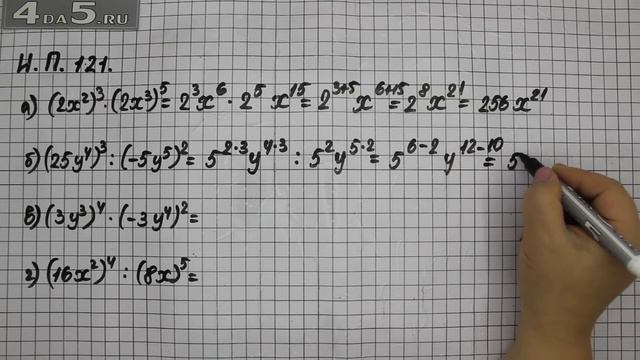 4DA5.RU
Н. П. 121.
а) (2x²)³ · (2x³)⁵ = 2³x⁶ · 2⁵ x¹⁵ = 2³⁺⁵x⁶⁺¹⁵ = 2⁸x²¹ = 256x²¹
б) (25y⁴)³ : (-5y⁵)² = 5²·³y⁴·³ : 5²y⁵·² = 5⁶⁻²y¹²⁻¹⁰ = 5
в) (3y³)⁴ · (-3y⁴)² =
г) (16x²)⁴ : (8x)⁵ =